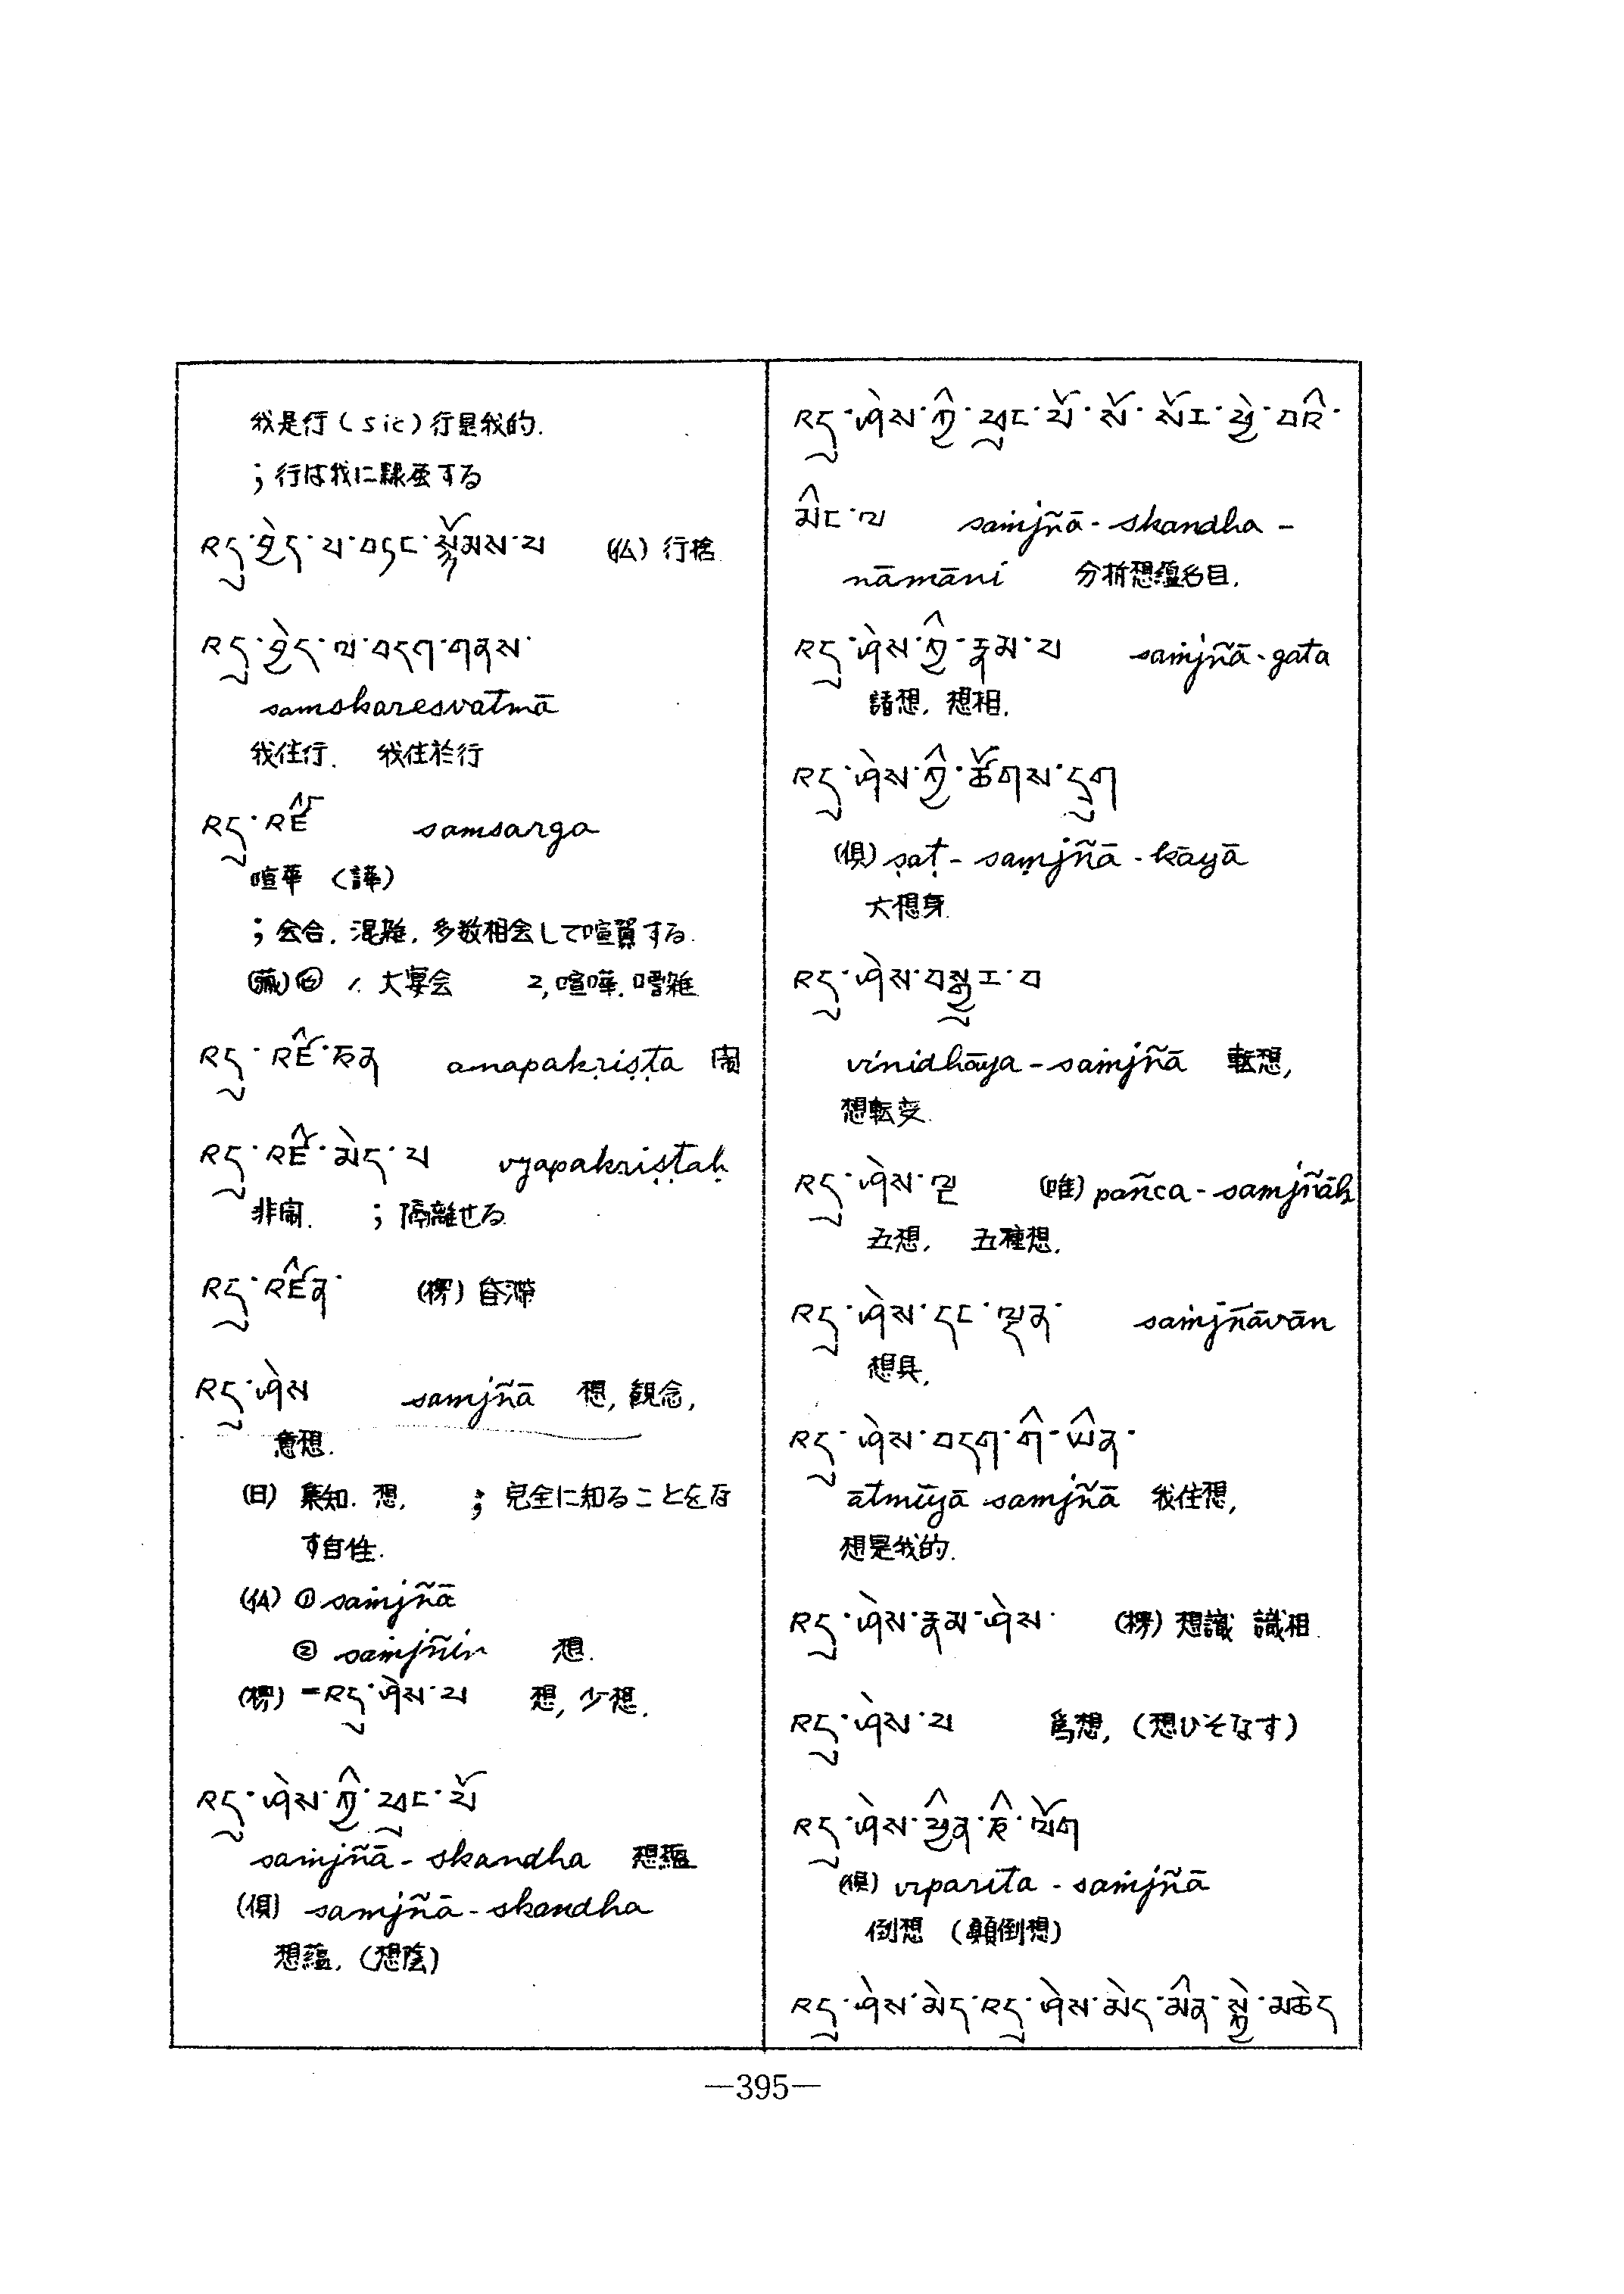 我是行(sic)行是我的.
;行は我に隷属する
འདུ་བྱེད་པ་བཏང་སྙོམས་པ (仏) 行捨
འདུ་བྱེད་ལ་བདག་གནས་
samskaresvatmā
我住行. 我住於行
འདུ་འཛི samsarga
喧華 (譁)
;会合. 混雑. 多数相会して喧買する.
(蔵) 1. 大宴会 2, 喧嘩. 噆雑
འདུ་འཛི་ཅན anapakṛiṣṭa 閙
འདུ་འཛི་མེད་པ vyapakriṣṭaḥ
非閙. ;隔離せる
འདུ་འཛིན་ (楞) 昏滞
འདུ་ཤེས samjñā 想, 観念,
意想.
(日) 集知. 想, ; 完全に知ることをな
す自性.
(仏) ① saṁjñā
② saṁjñin 想.
(楞) =འདུ་ཤེས་པ 想, 少想.
འདུ་ཤེས་ཀྱི་ཕུང་པོ
saṁjñā-skandha 想蘊
(倶) saṁjñā-skandha
想蘊, (想陰)
འདུ་ཤེས་ཀྱི་ཕུང་པོ་སོ་སོར་ཕྱེ་བའི་
མིང་ལ saṁjñā-skandha-
nāmāni 分析想蘊名目.
འདུ་ཤེས་ཀྱི་རྣམ་པ saṁjñā-gata
諸想, 想相.
འདུ་ཤེས་ཀྱི་ཚོགས་དྲུག
(倶) ṣaṭ-saṃjñā-kāyā
六想身.
འདུ་ཤེས་བསྒྱུར་བ
vinidhāya-saṁjñā 転想,
想転変.
འདུ་ཤེས་ལྔ (唯) pañca-saṁjñāḥ
五想, 五種想.
འདུ་ཤེས་དང་ལྡན་ saṁjñāvān
想具,
འདུ་ཤེས་བདག་གི་ཡིན་
ātmīyā saṁjñā 我住想,
想是我的.
འདུ་ཤེས་རྣམ་ཤེས་ (楞) 想識 識相.
འདུ་ཤེས་པ 為想, (想ひそなす)
འདུ་ཤེས་ཕྱིན་ཅི་ལོག
(倶) viparita-saṁjñā
倒想 (顛倒想)
འདུ་ཤེས་མེད་འདུ་ཤེས་མེད་མིན་སྐྱེ་མཆེད
—395—